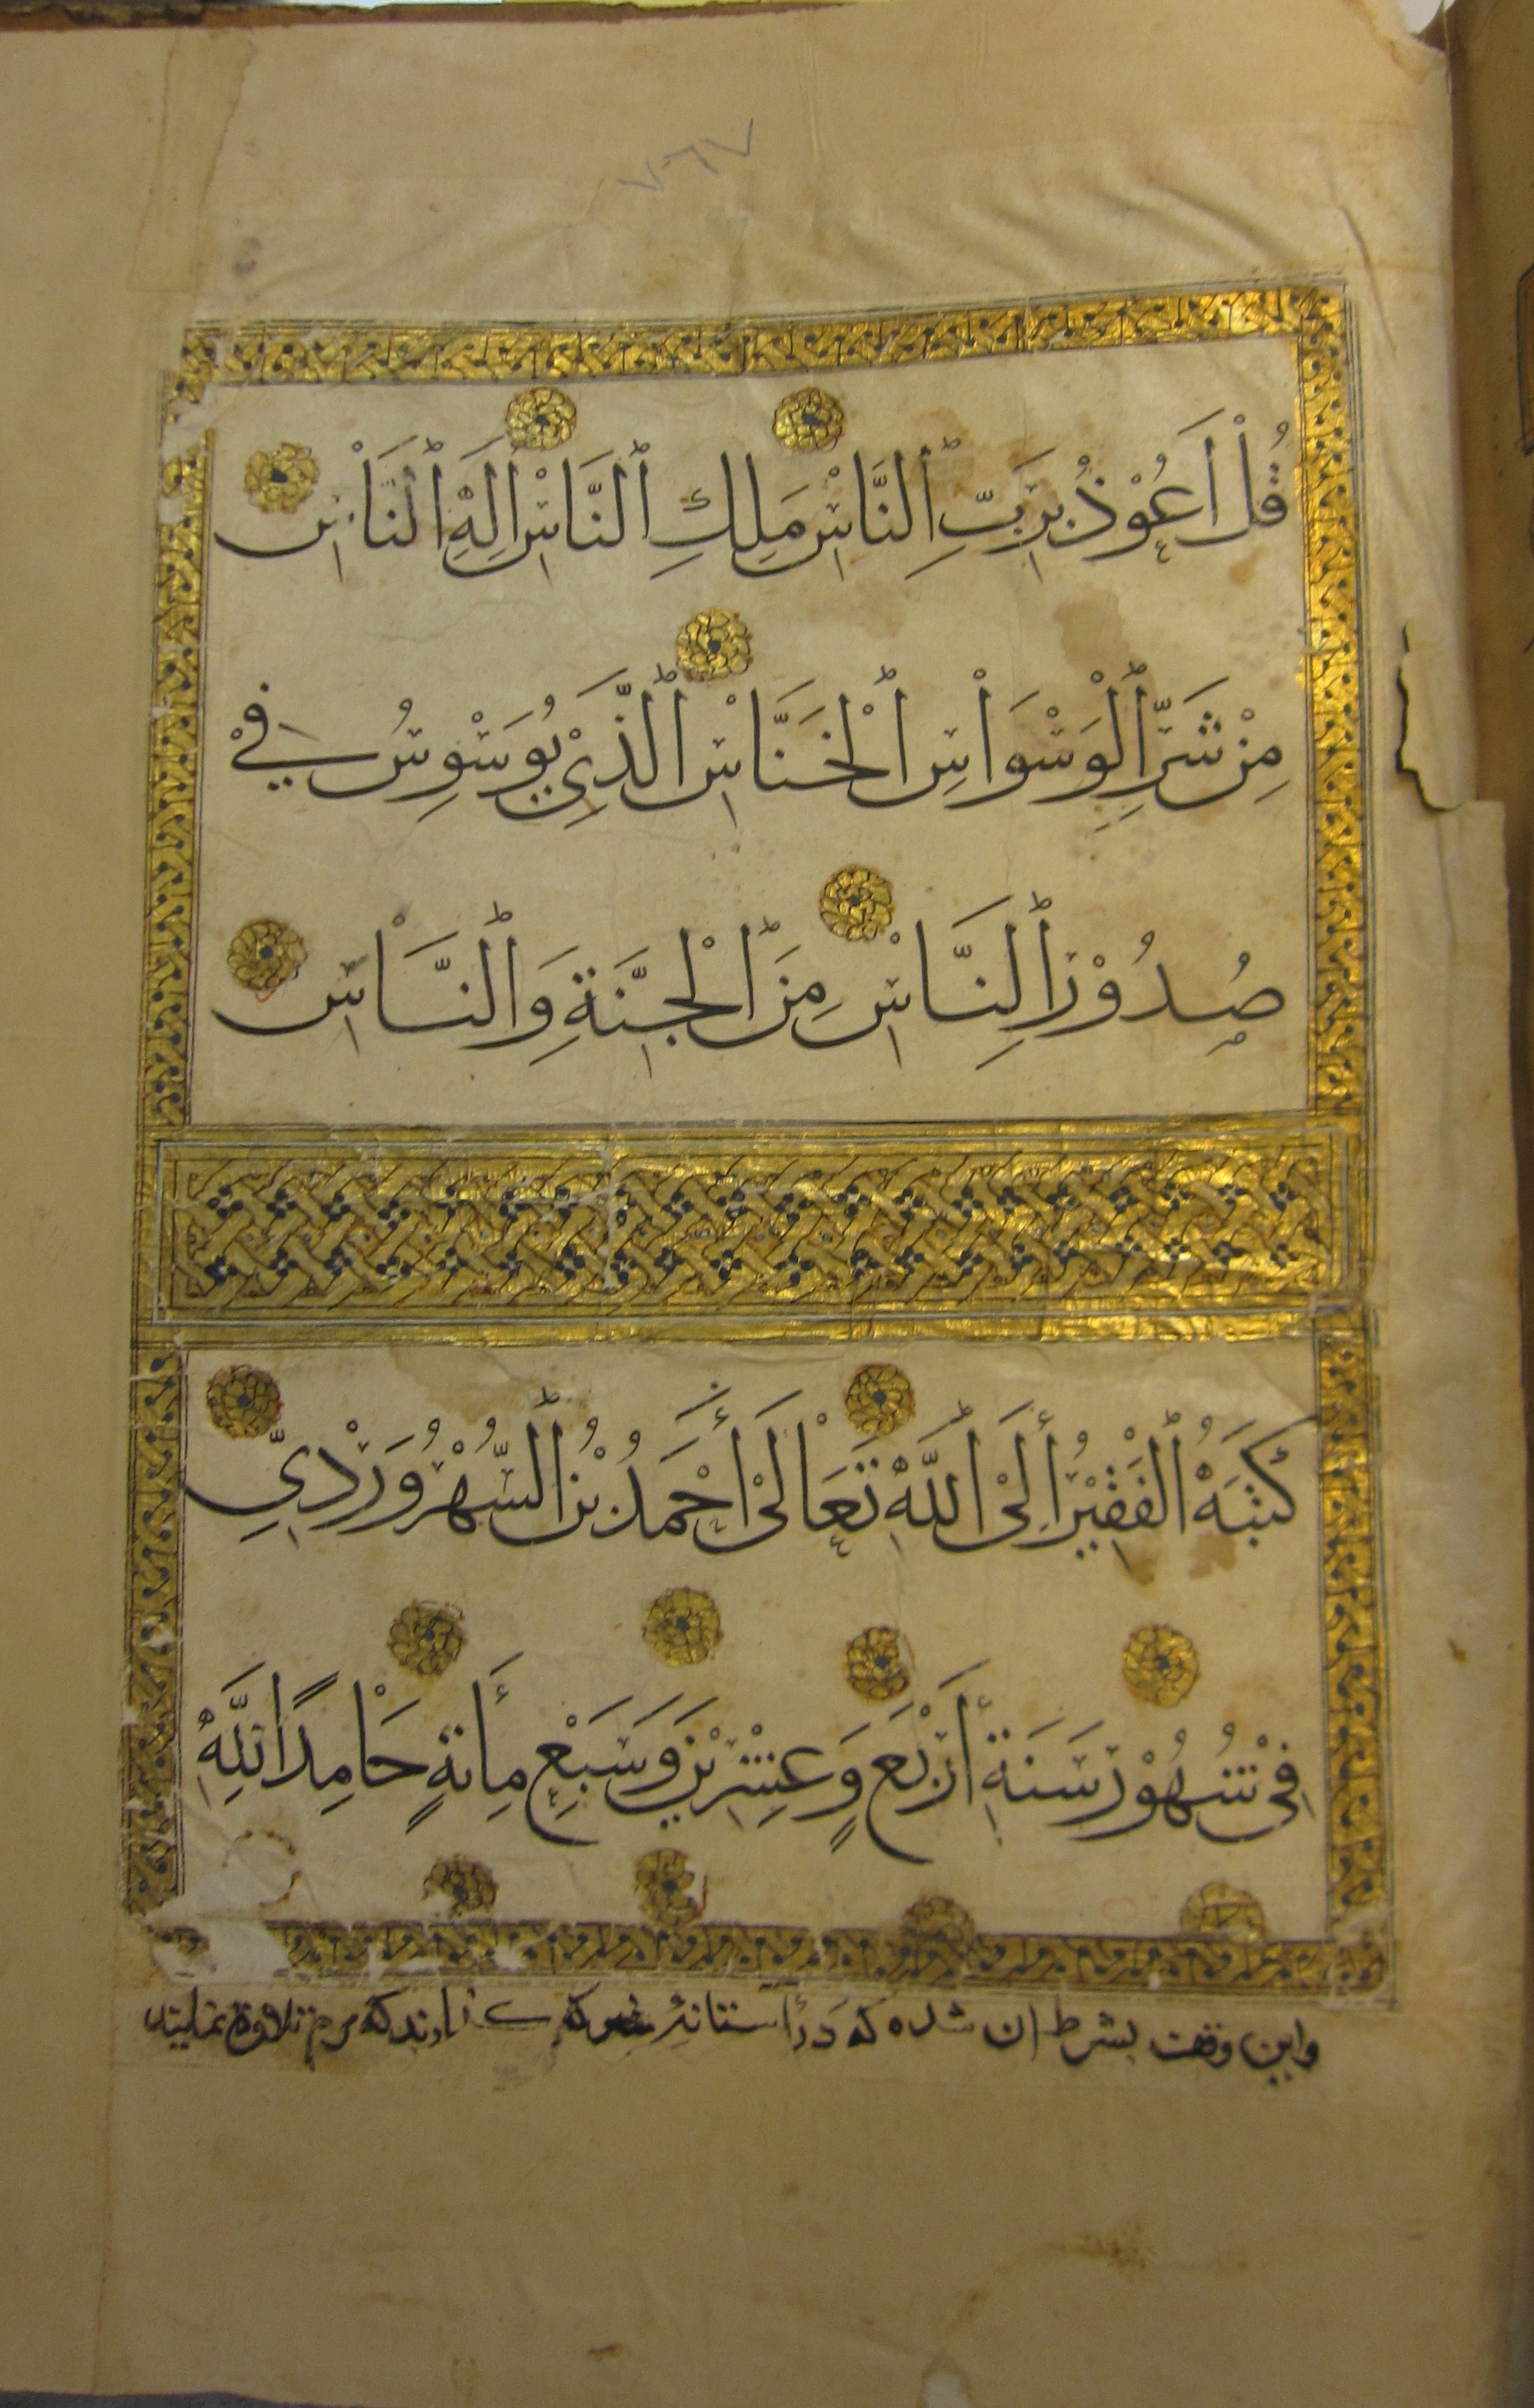 ٧٠٦٧
قُلْ اَعُوْذُ بِرَبِّ ٱلنَّاسْ مَلِكِ ٱلنَّاسْ اِلَهِ ٱلنَّاسْ
مِنْ شَرِّ ٱلْوَسْوَاسِ ٱلْخَنَّاسْ ٱلَّذِيْ يُوَسْوِسُ فِيْ
صُدُوْرِ ٱلنَّاسْ مِنَ ٱلْجِنَّةِ وَٱلنَّاسْ
كَتَبَهُ ٱلْفَقِيْرُ إِلَىْ ٱللَّهِ تَعَالَىْ أَحْمَدُ بْنُ ٱلسُّهْرُوَرْدِيِّ
فِىْ شُهُوْرِ سَنَةِ أَرْبَعٍ وَعِشْرِيْنَ وَسَبْعِ مِأَئةٍ حَامِدًا لِلَّهِ
واین وقفت بشرط ان شده که در آستانهٔ متبرکه تلاوة نمایند